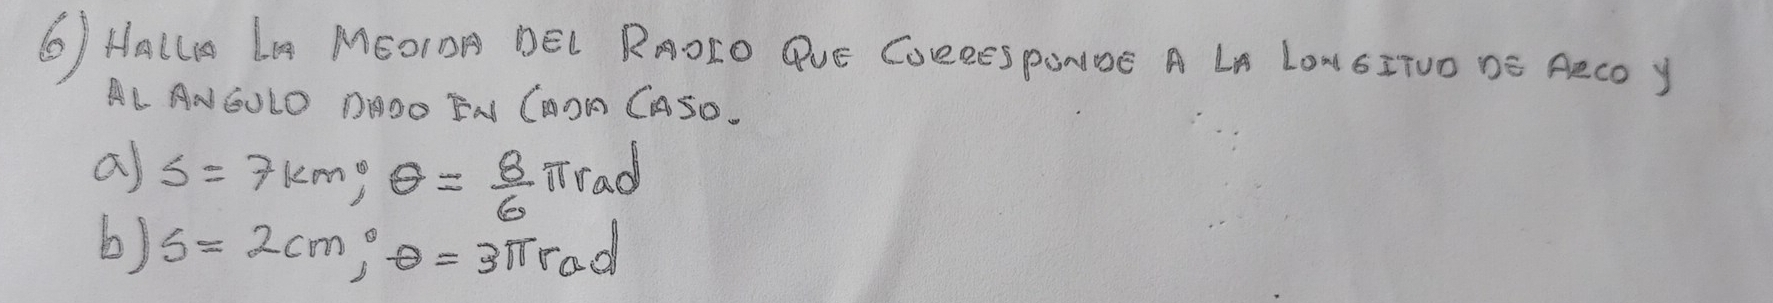 6) HALLA LA MEDIDA DEL RADIO QUE CORRESPONDE A LA LONGITUD DE ARCO y
AL ANGULO DADO EN CADA CASO.
a) s = 7km; θ = 8/6 πrad
b) s = 2cm; θ = 3πrad